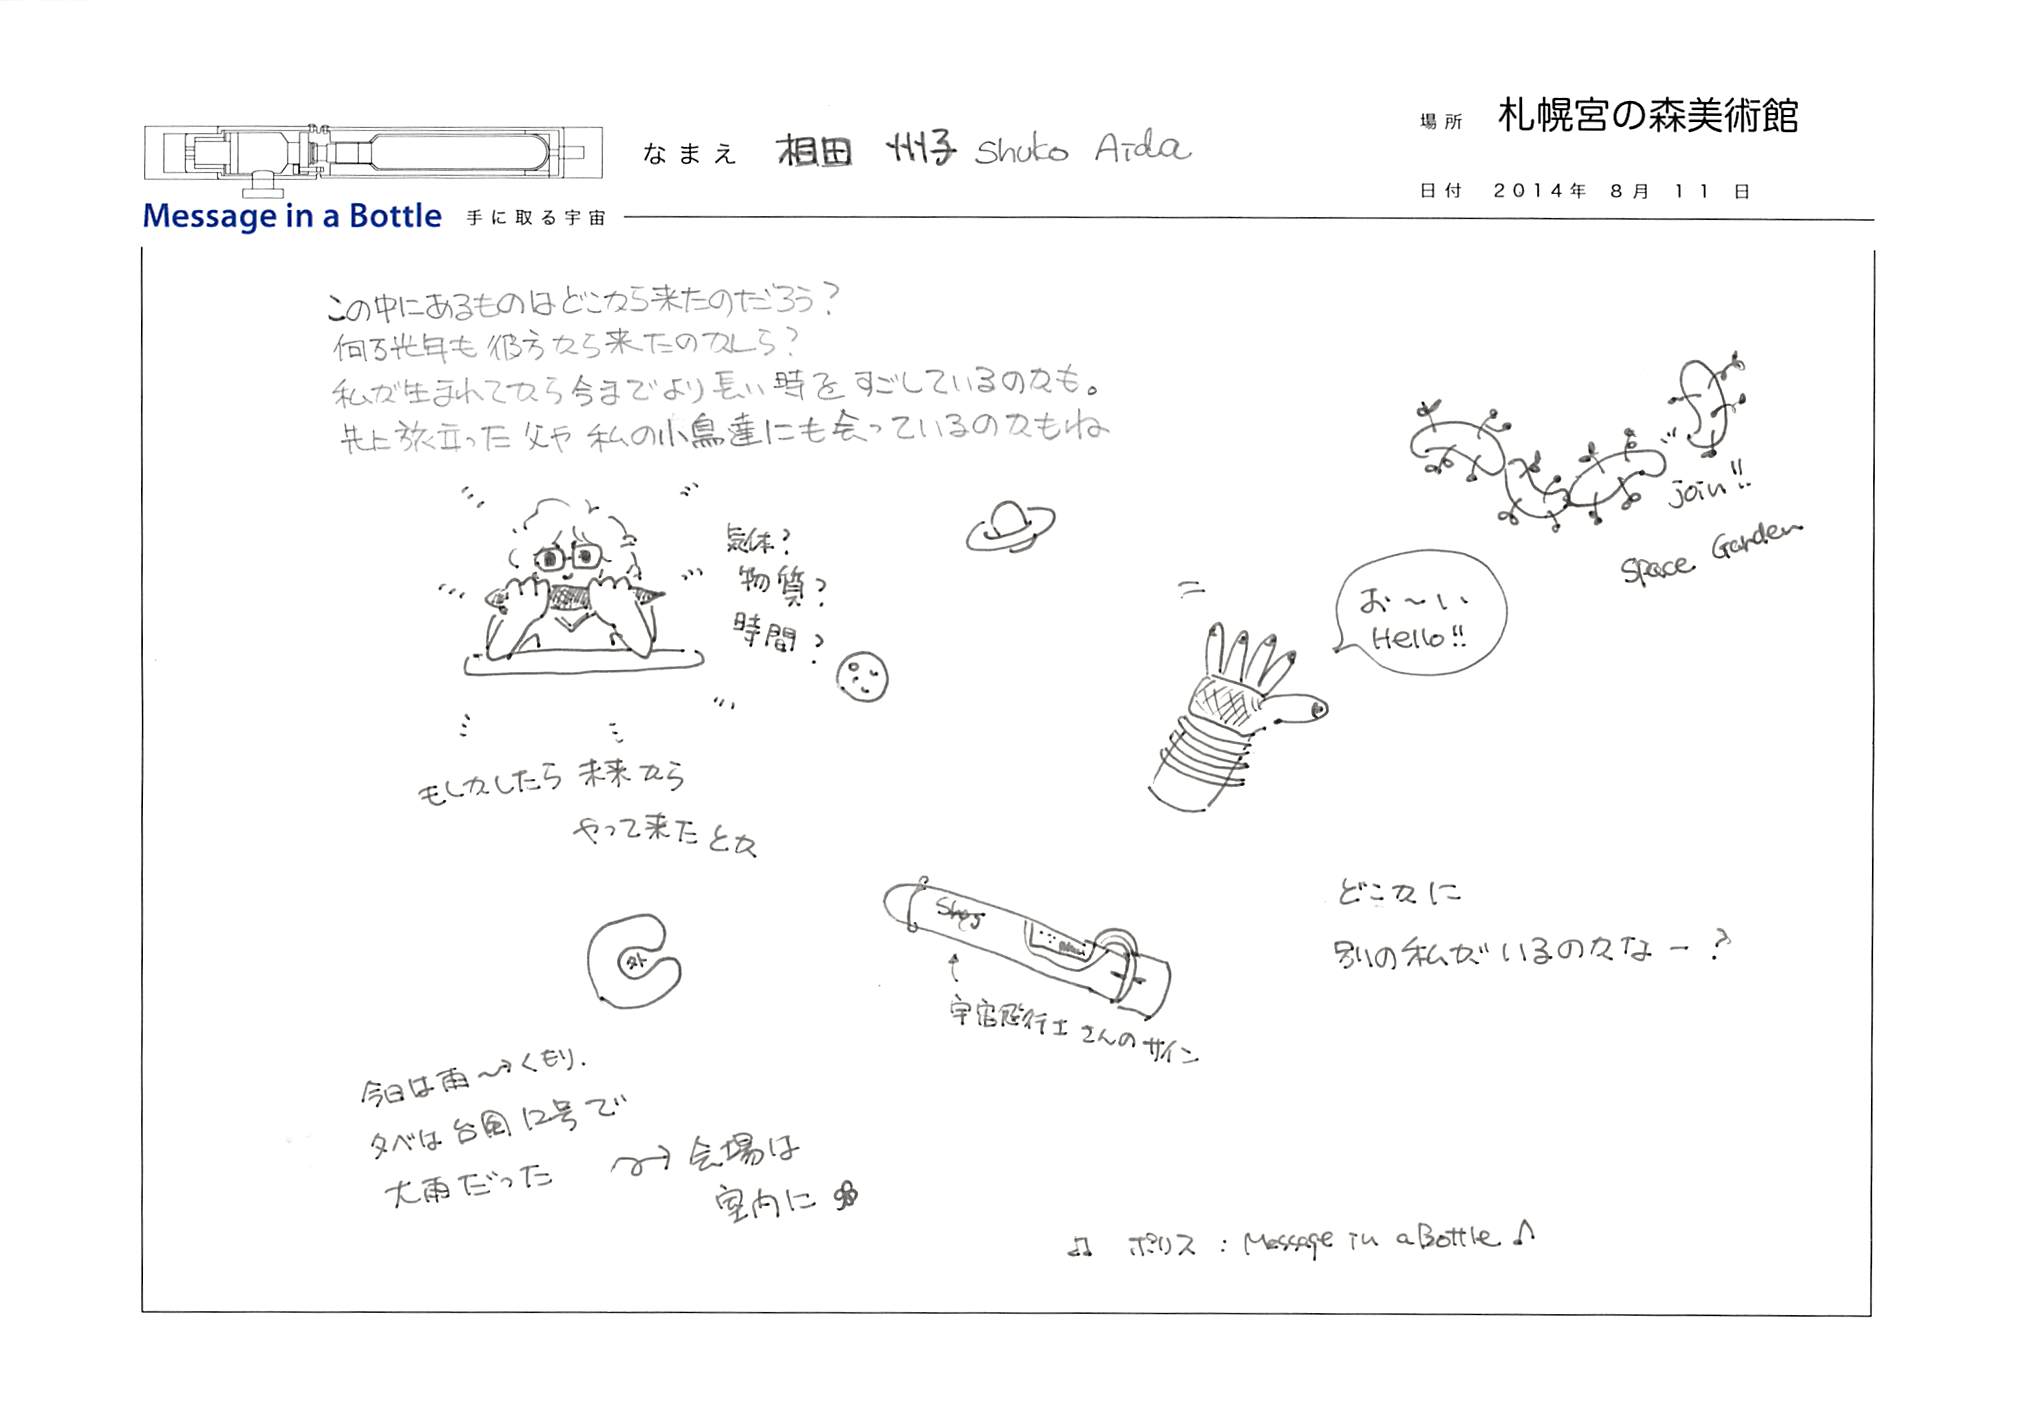 場所 札幌宮の森美術館
なまえ 相田 州子 Shuko Aida
日付 2014年 8月 11日
Message in a Bottle 手に取る宇宙
この中にあるものはどこから来たのだろう?
何万光年も彼方から来たのかしら?
私が生まれてから今までより長い時をすごしているのかも。
先に旅立った父や私の小鳥達にも会っているのかもね
気体?
物質?
時間?
join!!
Space Garden
お〜い
Hello!!
もしかしたら 未来から
やって来たとか
外
どこかに
別の私がいるのかなー?
宇宙飛行士さんのサイン
今日は雨〜→くもり.
夕べは台風12号で
大雨だった 〜→ 会場は
室内に
♫ ポリス : Message in a Bottle ♪